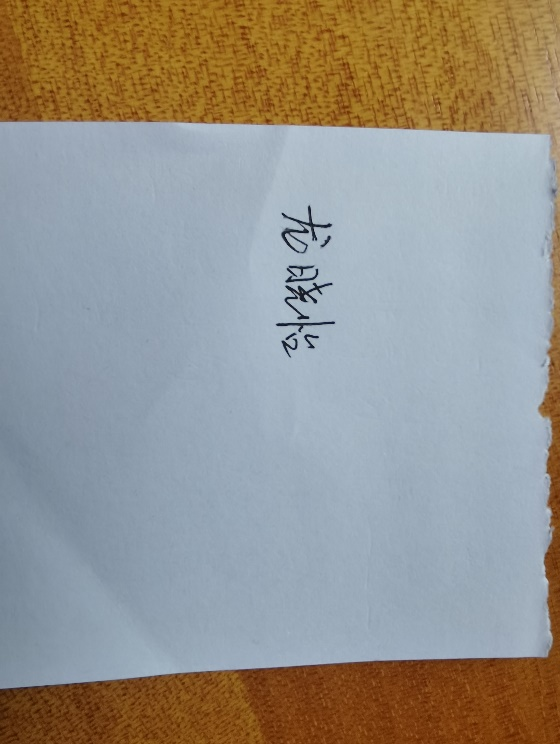 龙晓怡